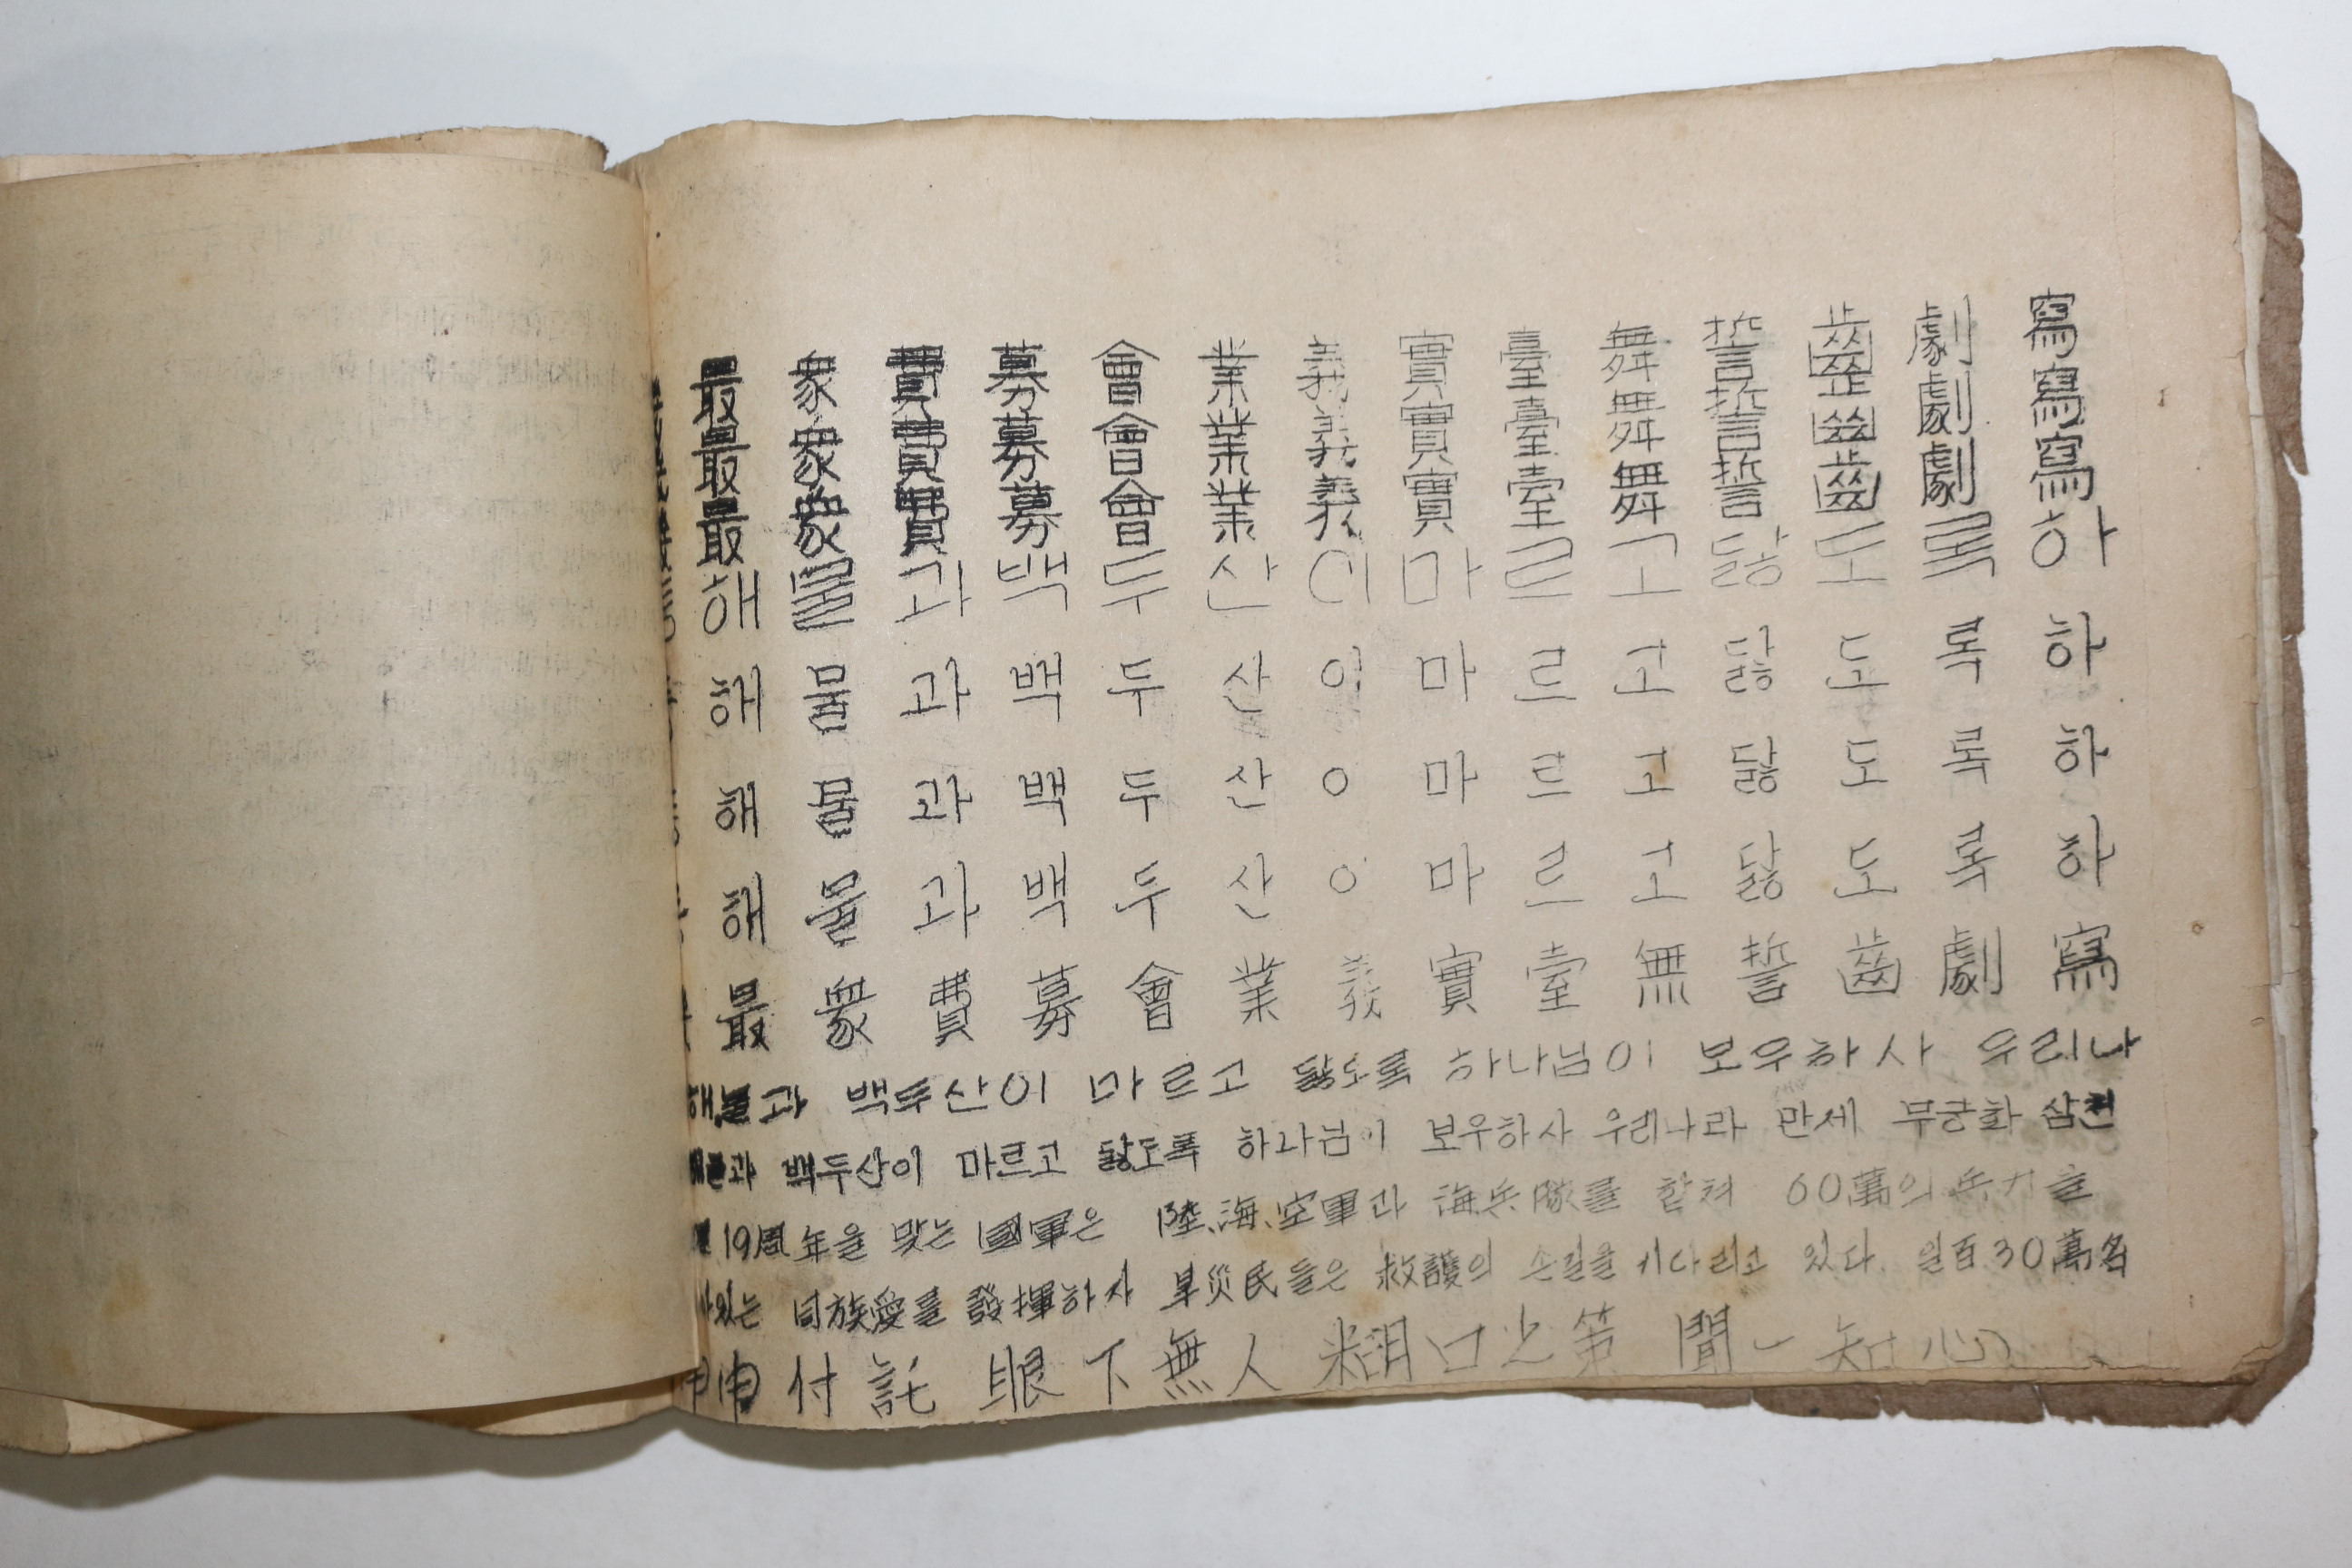 最 衆 費 募 會 業 義 實 臺 舞 誓 齒 劇 寫
最 衆 費 募 會 業 義 實 臺 舞 誓 齒 劇 寫
最 衆 費 募 會 業 義 實 臺 舞 誓 齒 劇 寫
해 물 과 백 두 산 이 마 르 고 닳 도 록 하
해 물 과 백 두 산 이 마 르 고 닳 도 록 하
해 물 과 백 두 산 이 마 르 고 닳 도 록 하
해 물 과 백 두 산 이 마 르 고 닳 도 록 하
最 衆 費 募 會 業 義 實 臺 無 誓 齒 劇 寫
해물과 백두산이 마르고 닳도록 하나님이 보우하사 우리나
과 백두산이 마르고 닳도록 하나님이 보우하사 우리나라 만세 무궁화 삼천
19周年을 맞는 國軍은 陸、海、空軍과 海兵隊를 합쳐 60萬의 兵力을
있는 同族愛를 發揮하사 旱災民들은 救護의 손길을 기다리고 있다. 일百30萬名
付託 眼下無人 糊口之策 聞一知